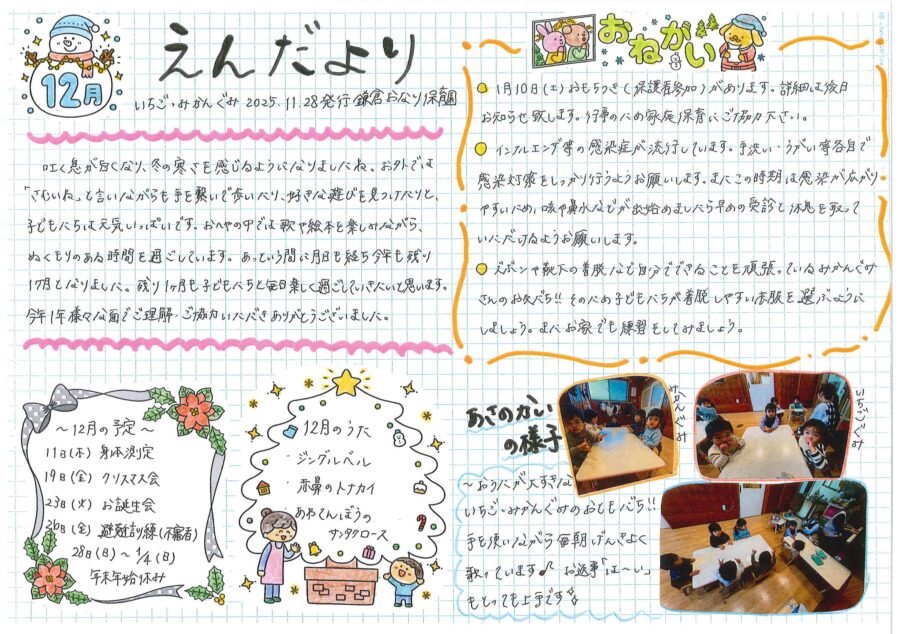 12月
えんだより
いちご・みかんぐみ 2025.11.28発行 鎌倉おなり保育園
吐く息が白くなり、冬の寒さを感じるようになりましたね。お外では
「さむいね」と言いながらも手を繋いで歩いたり、好きな遊びを見つけたりと、
子どもたちは元気いっぱいです。おへやの中では歌や絵本を楽しみながら、
ぬくもりのある時間を過ごしています。あっという間に月日も経ち今年も残り
1ヶ月となりました。残り1ヶ月も子どもたちと毎日楽しく過ごしていきたいと思います。
今年1年様々な面でご理解・ご協力いただきありがとうございました。
おねがい
1月10日(土)おもちつき(保護者参加)があります。詳細は後日
お知らせ致します。行事のため家庭保育にご協力下さい。
インフルエンザ等の感染症が流行しています。手洗い・うがい等各自で
感染対策をしっかり行うようお願いします。またこの時期は感染が広がり
やすいため、咳や鼻水などが出始めましたら早めの受診と休息を取って
いただけるようお願いします。
ズボンや靴下の着脱など自分でできることを頑張っているみかんぐみ
さんのお友だち!! そのため子どもたちが着脱しやすい衣服を選ぶように
しましょう。またお家でも練習をしてみましょう。
～12月の予定～
11日(木) 身体測定
19日(金) クリスマス会
23日(火) お誕生会
26日(金) 避難訓練(不審者)
28日(日)～1/4(日)
年末年始休み
12月のうた
ジングルベル
赤鼻のトナカイ
あわてんぼうの
サンタクロース
あさのかい
の様子
みかんぐみ
いちごぐみ
～おうたが大すきな
いちご・みかんぐみのおともだち!!
手を使いながら毎朝げんきよく
歌っています♪ お返事「は～い」
もとっても上手です